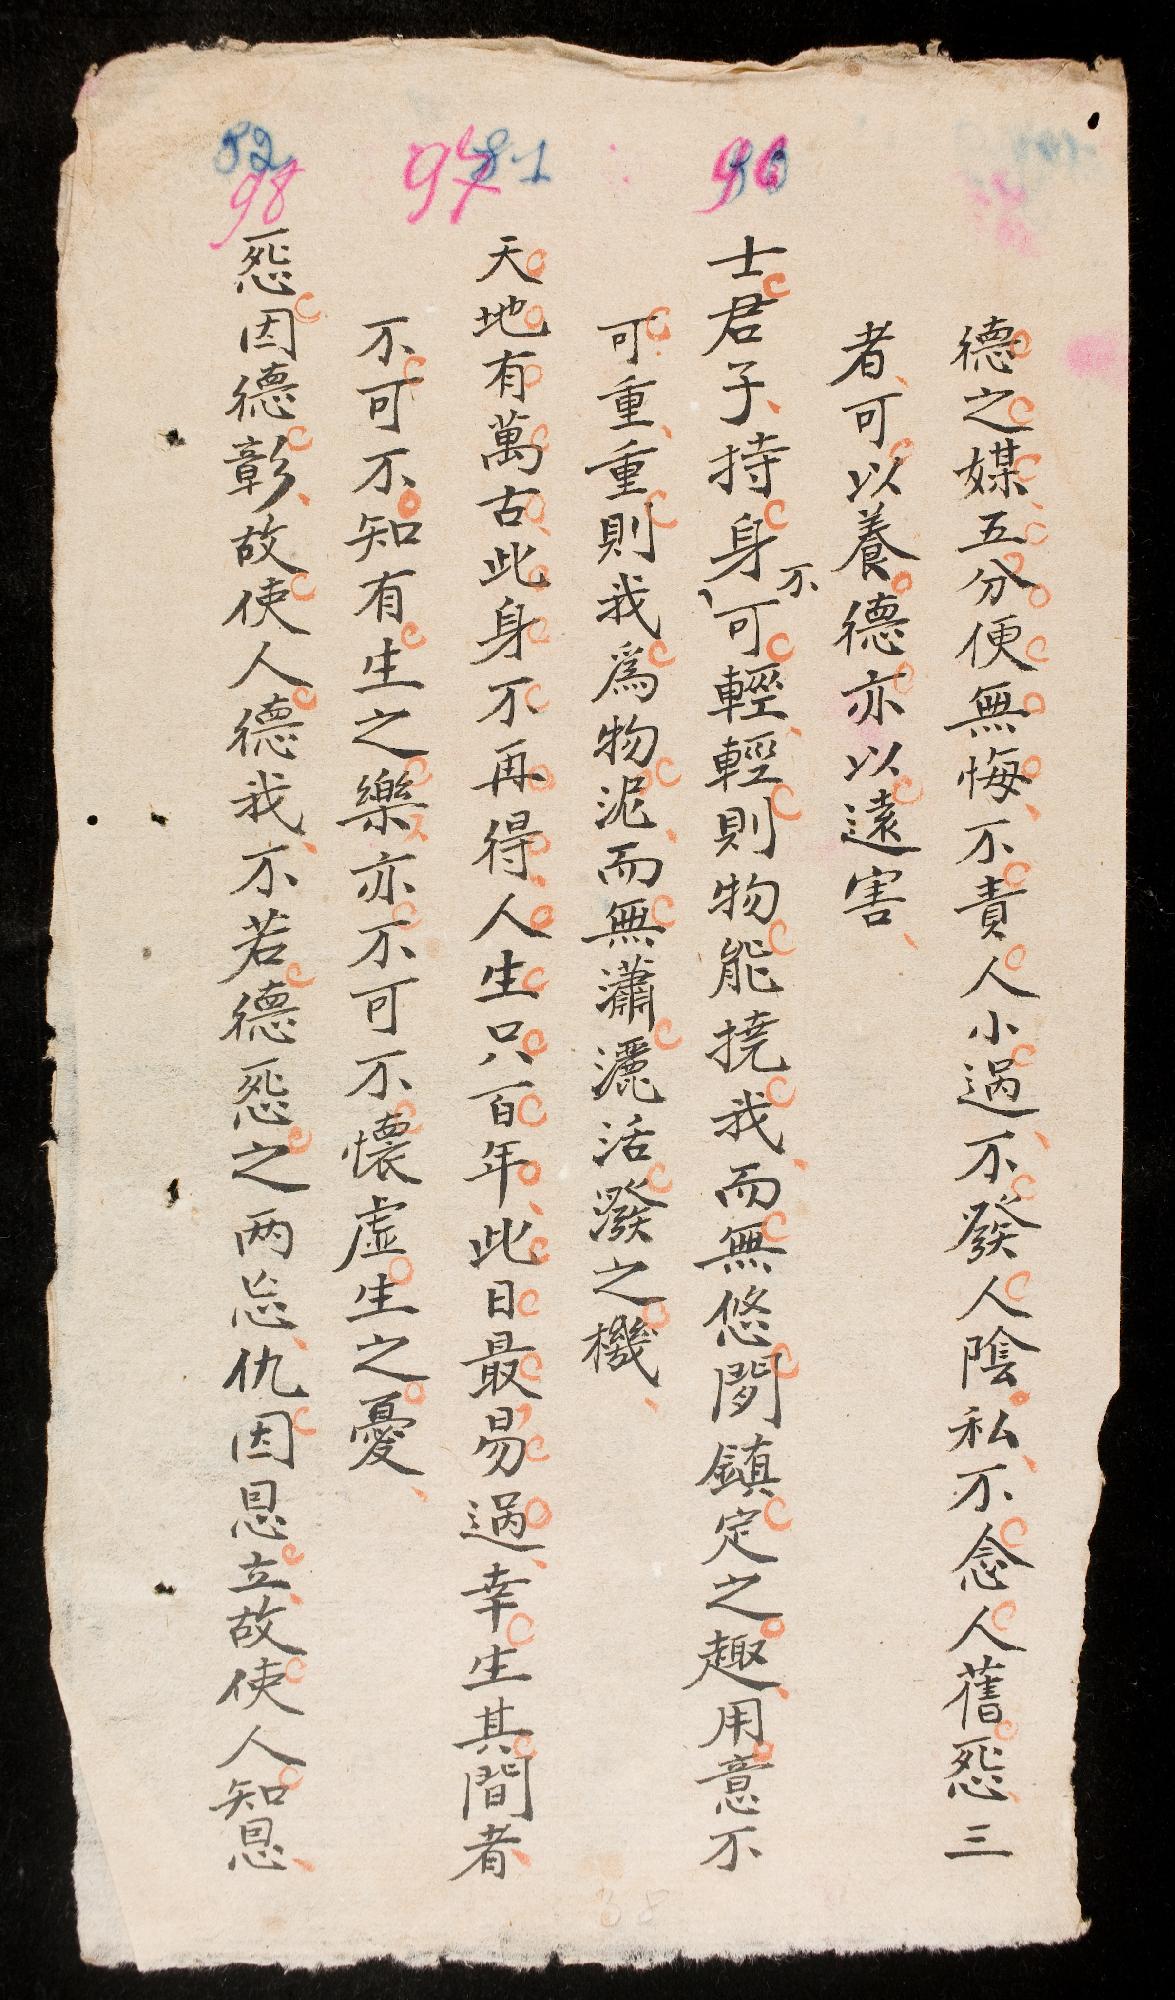 96
97 81
82
98
德之媒五分便無悔不責人小過不發人陰私不念人舊怨三
者可以養德亦以遠害
士君子持身不可輕輕則物能撓我而無悠閒鎮定之趣用意不
可重重則我為物泥而無瀟灑活潑之機
天地有萬古此身不再得人生只百年此日最易過幸生其間者
不可不知有生之樂亦不可不懷虛生之憂
怨因德彰故使人德我不若德怨之两忘仇因恩立故使人知恩
38